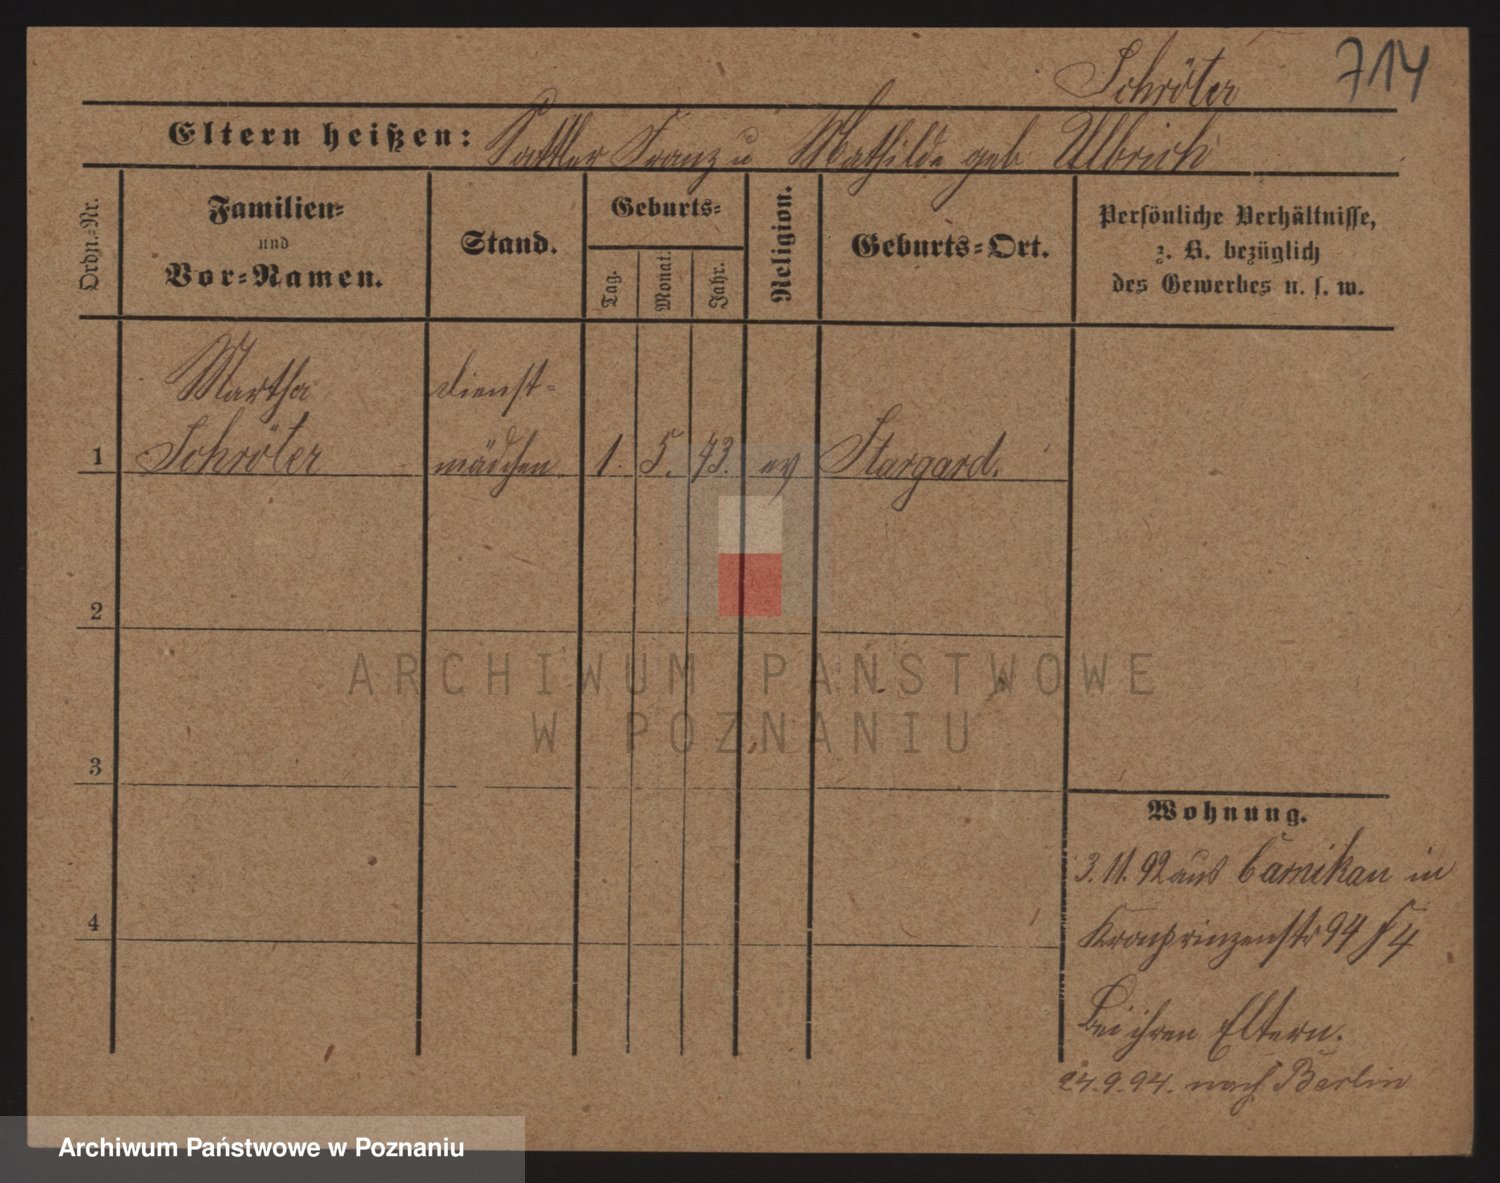 Schröter 714
Eltern heißen: Sattler Franz u Mathilde geb Ulbrich
Ordn.-Nr.
Familien-
und
Vor-Namen.
Stand.
Geburts-
Tag.
Monat.
Jahr.
Religion.
Geburts-Ort.
Persönliche Verhältnisse,
z. B. bezüglich
des Gewerbes u. s. w.
Martha dienst-
1 Schröter mädchen 1. 5. 73. ev Stargard.
2
3
4
Wohnung.
3.11.92 aus Czarnikau in
Kronprinzenstr 94
Bei ihren Eltern.
24.9.94. nach Berlin
ARCHIWUM PAŃSTWOWE
W POZNANIU
Archiwum Państwowe w Poznaniu